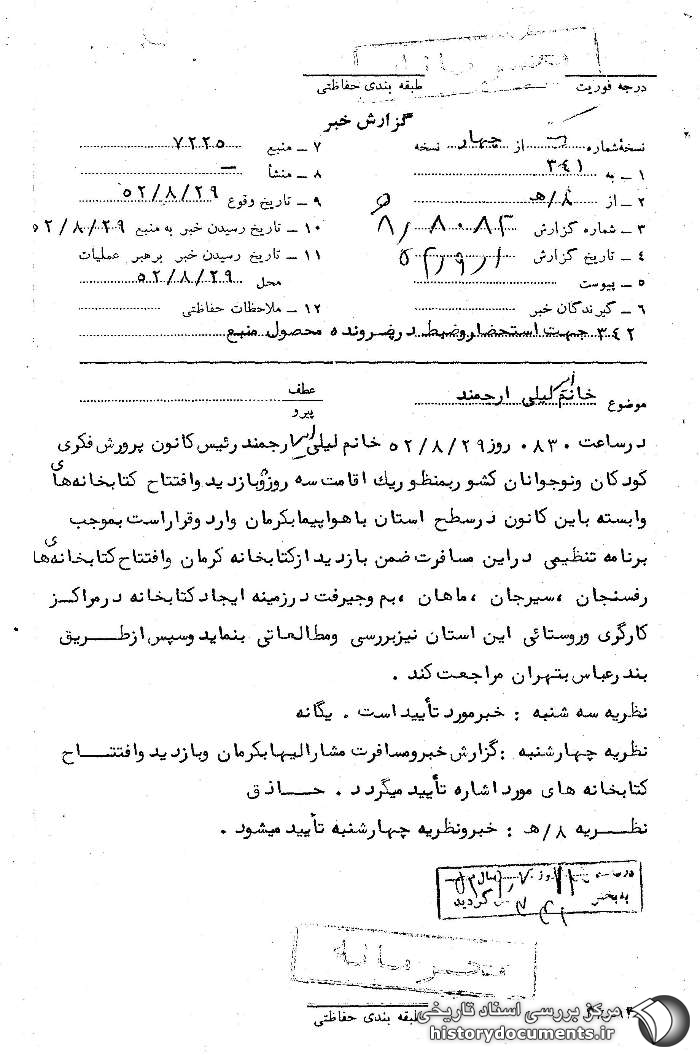 درجه فوریت طبقه بندی حفاظتی
گزارش خبر
نسخه شماره از چهار نسخه
۷ – منبع ۷۲۲۵
۱ – به ۳۴۱
۸ – منشأ –
۲ – از ۸/هـ
۹ – تاریخ وقوع ۵۲/۸/۲۹
۳ – شماره گزارش ۸۰۸۲/۸هـ
۱۰ – تاریخ رسیدن خبر به منبع ۵۲/۸/۲۹
۴ – تاریخ گزارش ۵۲/۹/۱
۱۱ – تاریخ رسیدن خبر برهبر عملیات
۵ – پیوست
محل ۵۲/۸/۲۹
۶ – گیرندگان خبر
۱۲ – ملاحظات حفاظتی
۳۴۲ جهت استحضار وضبط در پرونده محصول منبع
موضوع خانم لیلی امیر ارجمند
عطف
پیرو
درساعت ۰۸۳۰ روز ۵۲/۸/۲۹ خانم لیلی امیر ارجمند رئیس کانون پرورش فکری
کودکان ونوجوانان کشور بمنظور یك اقامت سه روزه وبازدید وافتتاح کتابخانه‌های
وابسته باین کانون درسطح استان با هواپیما بکرمان وارد وقرار است بموجب
برنامه تنظیمی دراین مسافرت ضمن بازدید از کتابخانه کرمان وافتتاح کتابخانه‌های
رفسنجان ، سیرجان ، ماهان ، بم وجیرفت درزمینه ایجاد کتابخانه درمراکز
کارگری وروستائی این استان نیز بررسی ومطالعاتی بنماید وسپس از طریق
بندرعباس بتهران مراجعت کند .
نظریه سه شنبه : خبر مورد تأیید است . یگانه
نظریه چهارشنبه : گزارش خبر ومسافرت مشارالیها بکرمان وبازدید وافتتاح
کتابخانه های مورد اشاره تأیید میگردد . حاذق
نظریه ۸/هـ : خبر ونظریه چهارشنبه تأیید میشود .
به بخش ۳۴۱ گردید
طبقه بندی حفاظتی
مرکز بررسی اسناد تاریخی
historydocuments.ir